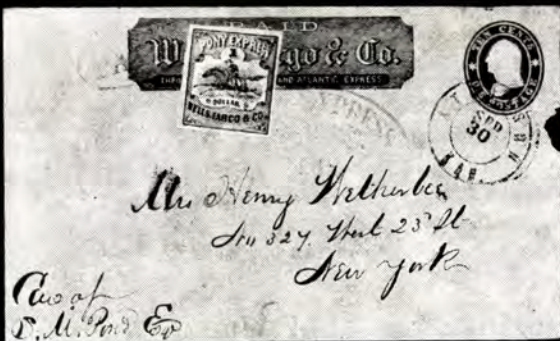 PAID
W go & Co.
AND ATLANTIC EXPRESS.
PONY EXPRESS
1
DOLLAR
WELLS, FARGO & CO.
TEN CENTS
U.S. POSTAGE
30
XPRESS
Mrs Henry Wetherbee
No 327. West 23d St
New York
Care of
Pond Esq